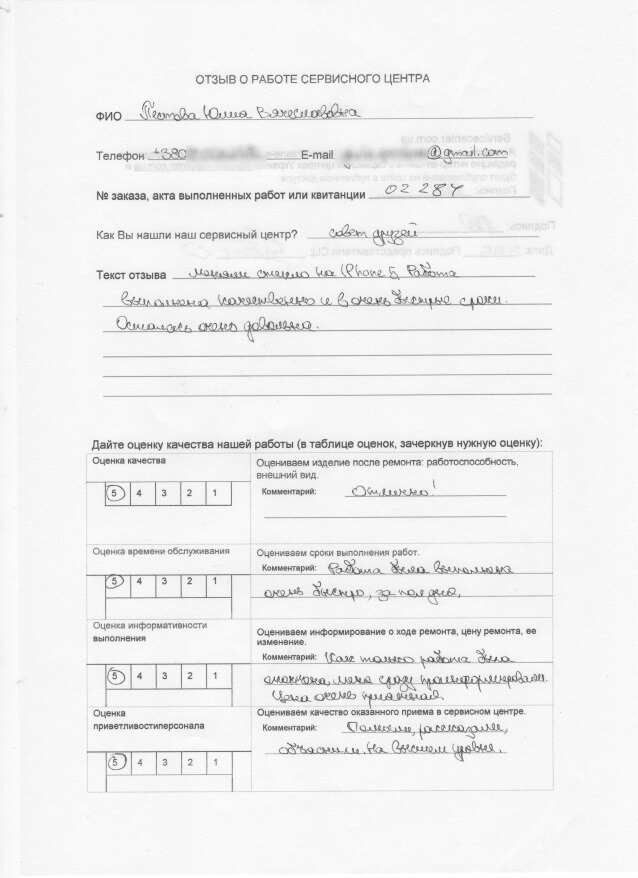 ОТЗЫВ О РАБОТЕ СЕРВИСНОГО ЦЕНТРА
ФИО Юлия Вячеславовна
Телефон +380 E-mail @gmail.com
№ заказа, акта выполненных работ или квитанции 02284
Как Вы нашли наш сервисный центр? совет друзей
Текст отзыва меняли стекло на iPhone 5. Работа
выполнена качественно и в очень быстрые сроки.
Осталась очень довольна.
Дайте оценку качества нашей работы (в таблице оценок, зачеркнув нужную оценку):
Оценка качества
5 4 3 2 1
Оцениваем изделие после ремонта: работоспособность,
внешний вид.
Комментарий: Отлично!
Оценка времени обслуживания
5 4 3 2 1
Оцениваем сроки выполнения работ.
Комментарий: Работа была выполнена
очень быстро, за пол дня.
Оценка информативности
выполнения
5 4 3 2 1
Оцениваем информирование о ходе ремонта, цену ремонта, ее
изменение.
Комментарий: Как только работа была
меня сразу проинформировали.
Цена очень приятная.
Оценка
приветливостиперсонала
5 4 3 2 1
Оцениваем качество оказанного приема в сервисном центре.
Комментарий: рассказали,
объяснили, на высшем уровне.